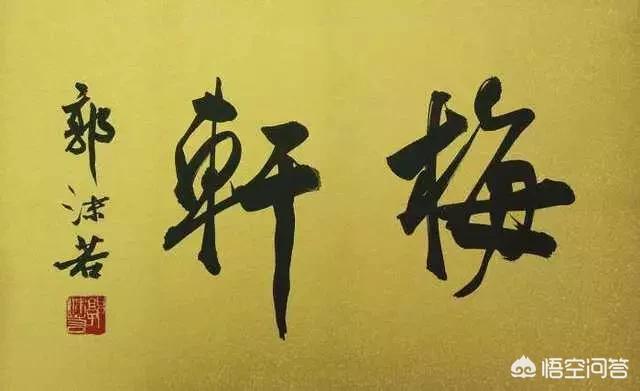 梅軒
郭沫若
悟空问答